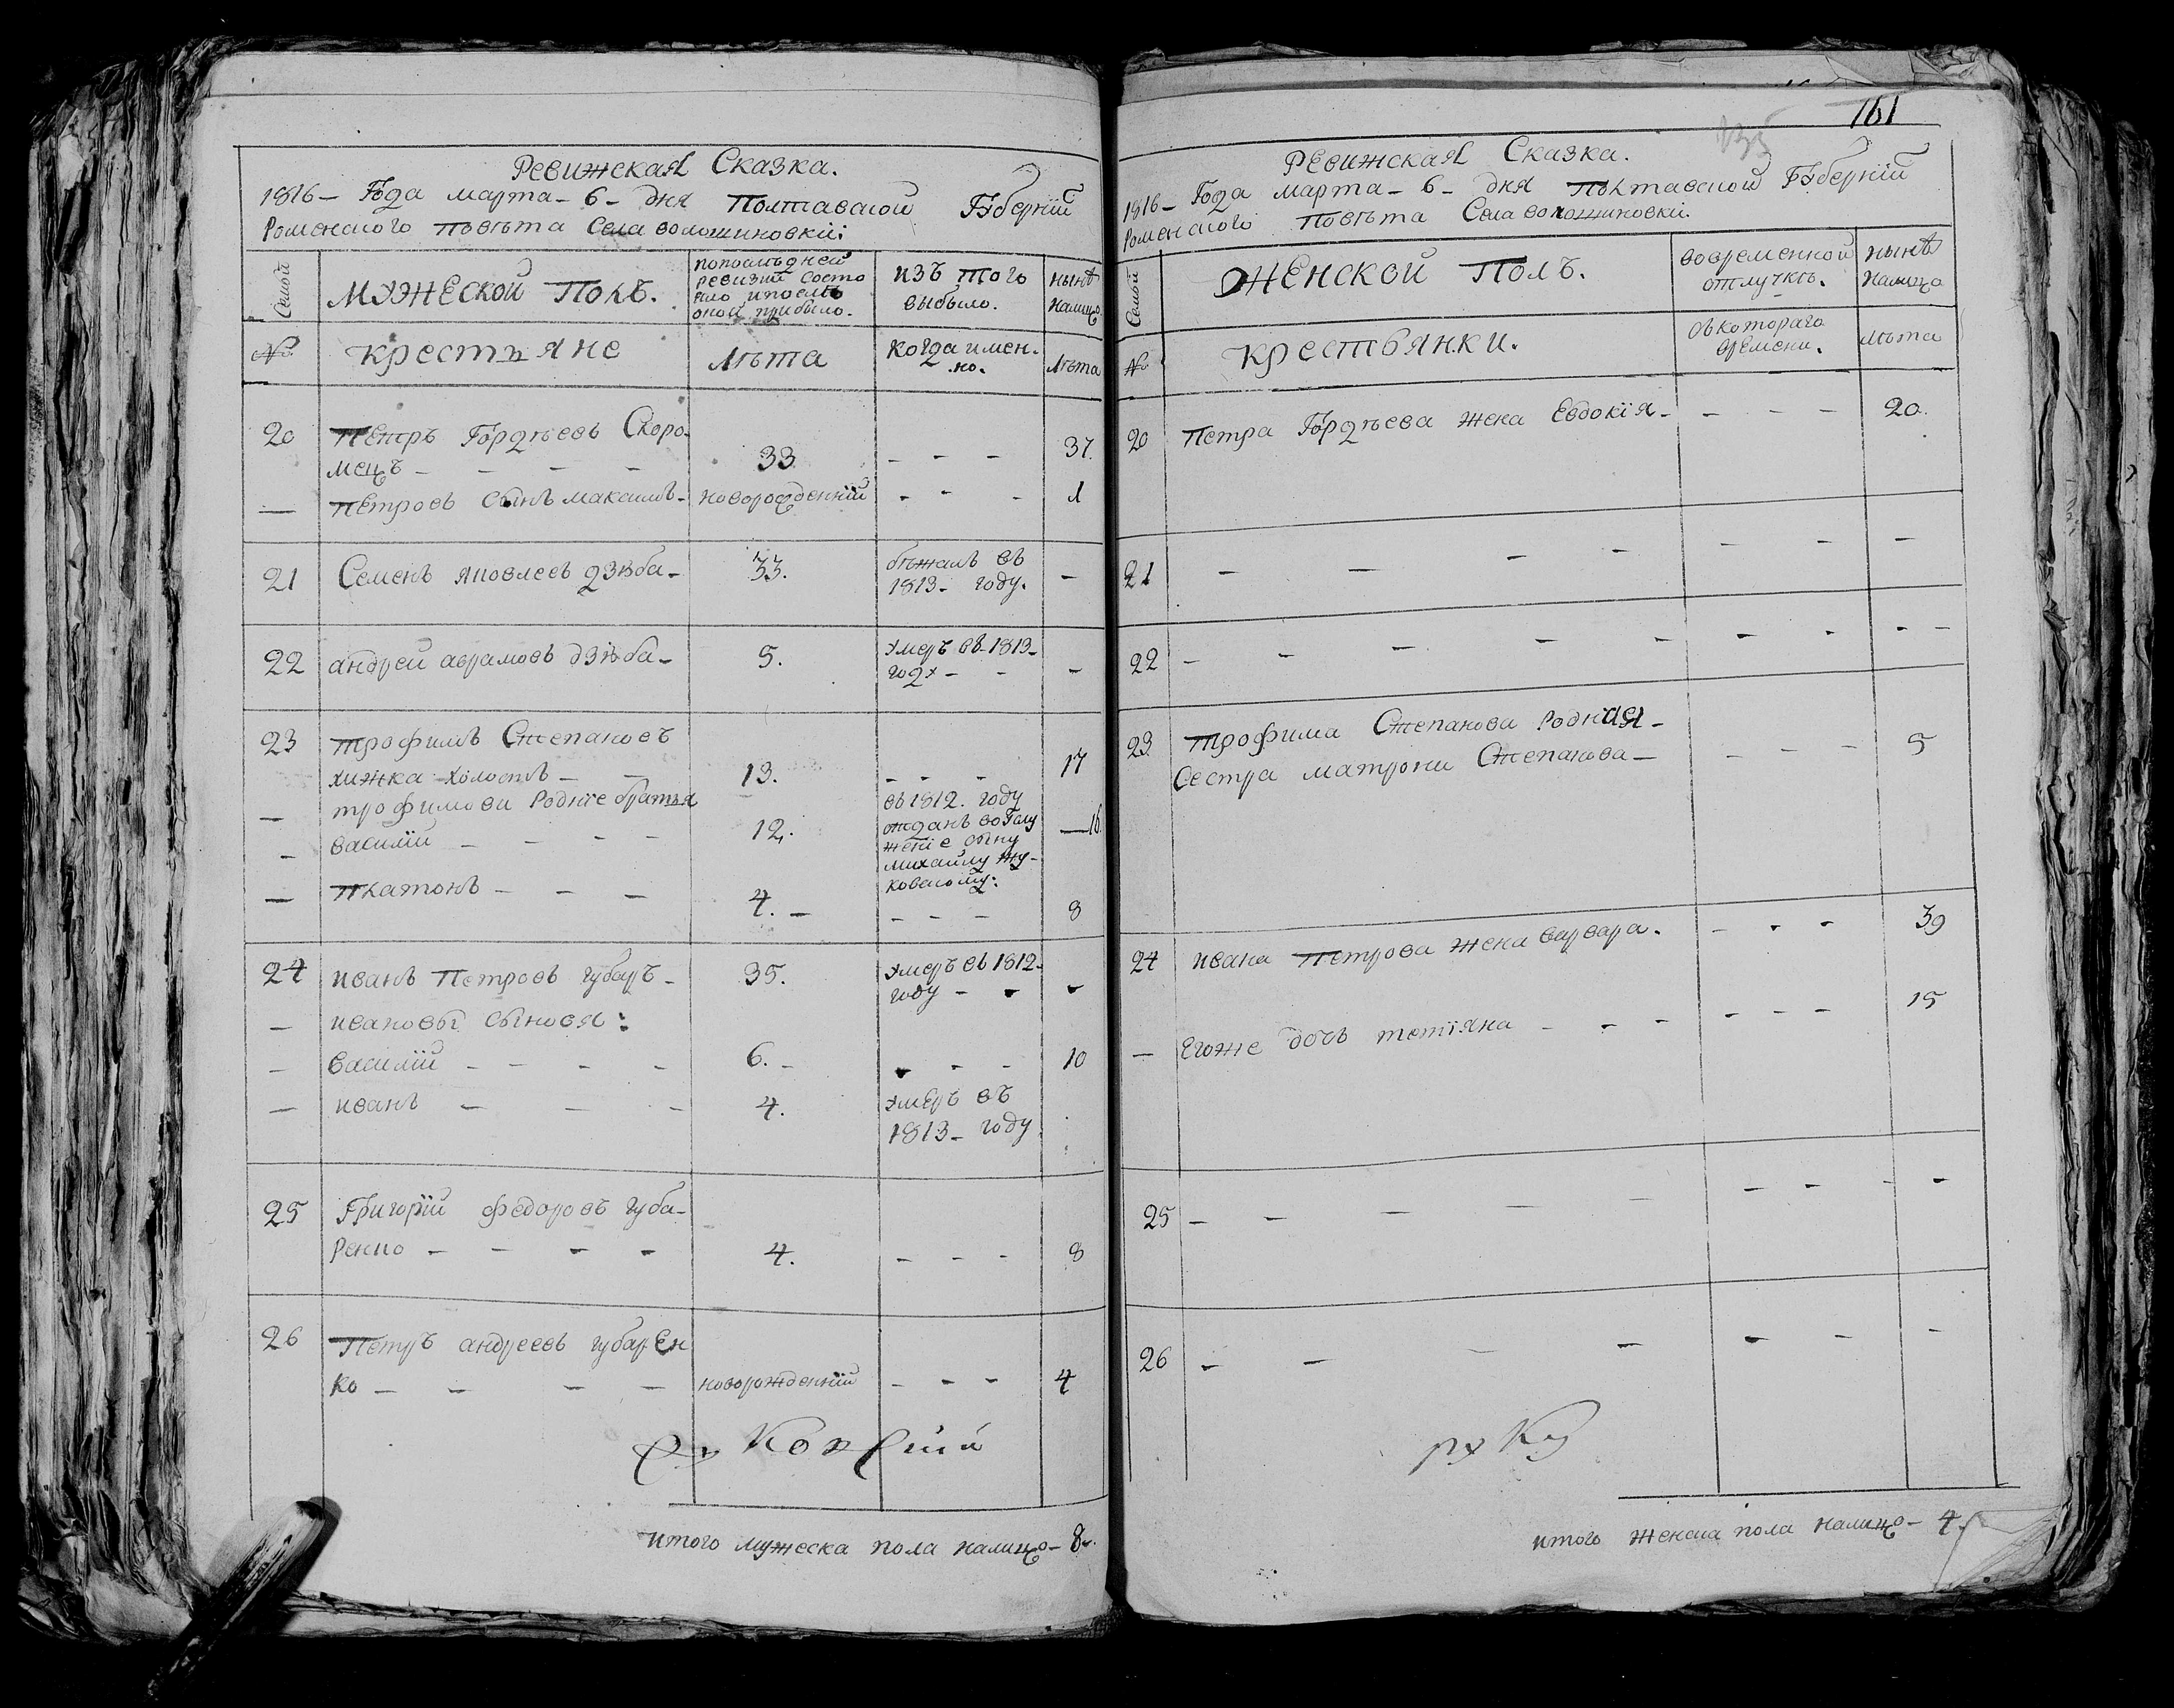 Ревижская Сказка.
1816 – Года марта – 6 – дня Полтавской Губернїй
Роменского Повѣта Села волошиновкїи:
Семьй
Мужеской Полъ.
попослѣдней
ревизїи состо
яло ипослѣ
оной прибыло.
изъ того
выбыло.
нынѣ
налицо
№
крестьяне
лѣта
когда имен-
но.
лѣта
20
Петръ Гордѣевъ Скоро-
мецъ – – – –
33
– – –
37.
— Петровъ сынъ максимъ – новорожденнїй – – – 1
21
Семенъ яковлевъ дзюба –
33.
бѣжалъ въ
1813 – году.
–
22
андрей аврамовъ дзюба –
5.
умеръ въ 1813 –
году – –
–
23
трофимъ Степановъ
хижка холостъ – –
13.
– – –
17
— трофимови Роднїе братья
– василїй – – –
12.
въ 1812. году
отданъ вослу
женїе сыну
михайлу жу-
ковскому:
— 16
— Платонъ – – –
4. –
– – –
8
24
иванъ Петровъ губаръ –
35.
умеръ въ 1812
году – –
–
— ивановы сыновя:
– василїй – – – –
6. –
– – –
10
— иванъ – – –
4.
умеръ въ
1813 – году
25
Григорїй федоровъ губа-
ренко – – – –
4.
– – –
8
26
Петръ андреевъ губарен
ко – – – –
новорожденнїй
– – –
4
итого мужеска пола налицо – 8.
161
135
Ревижская Сказка.
1816 – Года марта – 6 – дня Полтавской Губернїй
Роменского Повѣта Села волошиновкї.
Семьй
Женской Полъ.
вовременной
отлучкѣ.
нынѣ
налицо
№
крестьянки.
съкотораго
времени.
лѣта
20
Петра Гордѣева жена Евдокїя –
– – –
20.
21
– – – – – – –
22
– – – – – – – – –
23
трофима Степанова Родная –
Сестра матрони Степанова –
– – –
5
24
ивана Петрова жена варвара.
– – –
39
— Егоже дочъ тетїяна – – –
– – –
15
25
– – – – – – – – –
26
– – – – – – –
итого женска пола налицо – 4.